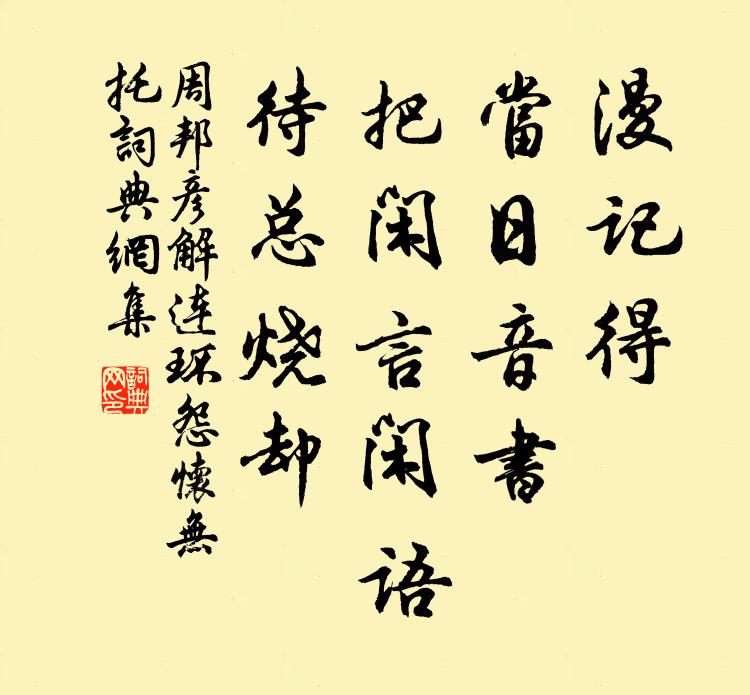 漫记得
當日音書
把闲言闲语
待总烧却
周邦彦解连环怨懷無
托詞典網集
詞典网印